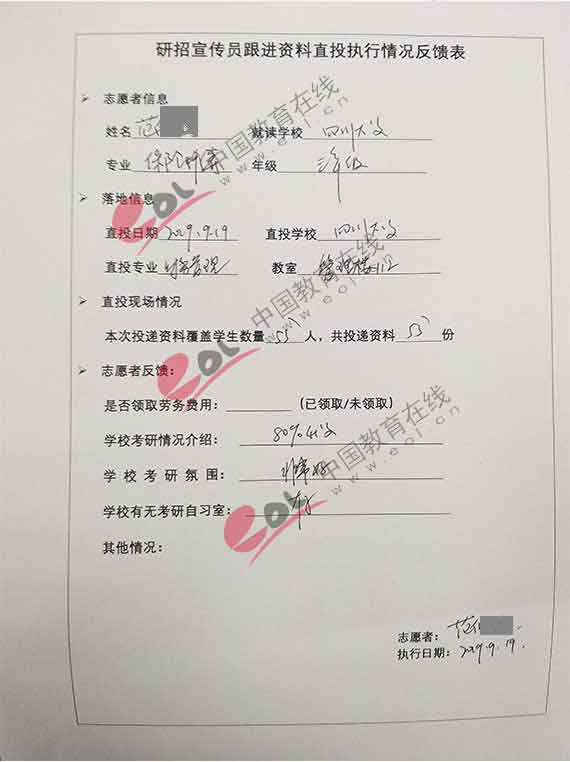 研招宣传员跟进资料直投执行情况反馈表
志愿者信息
姓名 范 就读学校 四川大学
专业 保险 年级 三年级
落地信息
直投日期 2019.9.19 直投学校 四川大学
直投专业 管理 教室
直投现场情况
本次投递资料覆盖学生数量 55 人，共投递资料 55 份
志愿者反馈：
是否领取劳务费用： (已领取/未领取)
学校考研情况介绍： 80%
学校考研氛围： 非常好
学校有无考研自习室： 有
其他情况：
志愿者： 范
执行日期： 2019.9.19.
eol 中国教育在线
www.eol.cn
eol 中国教育在线
www.eol.cn
eol 中国教育在线
www.eol.cn